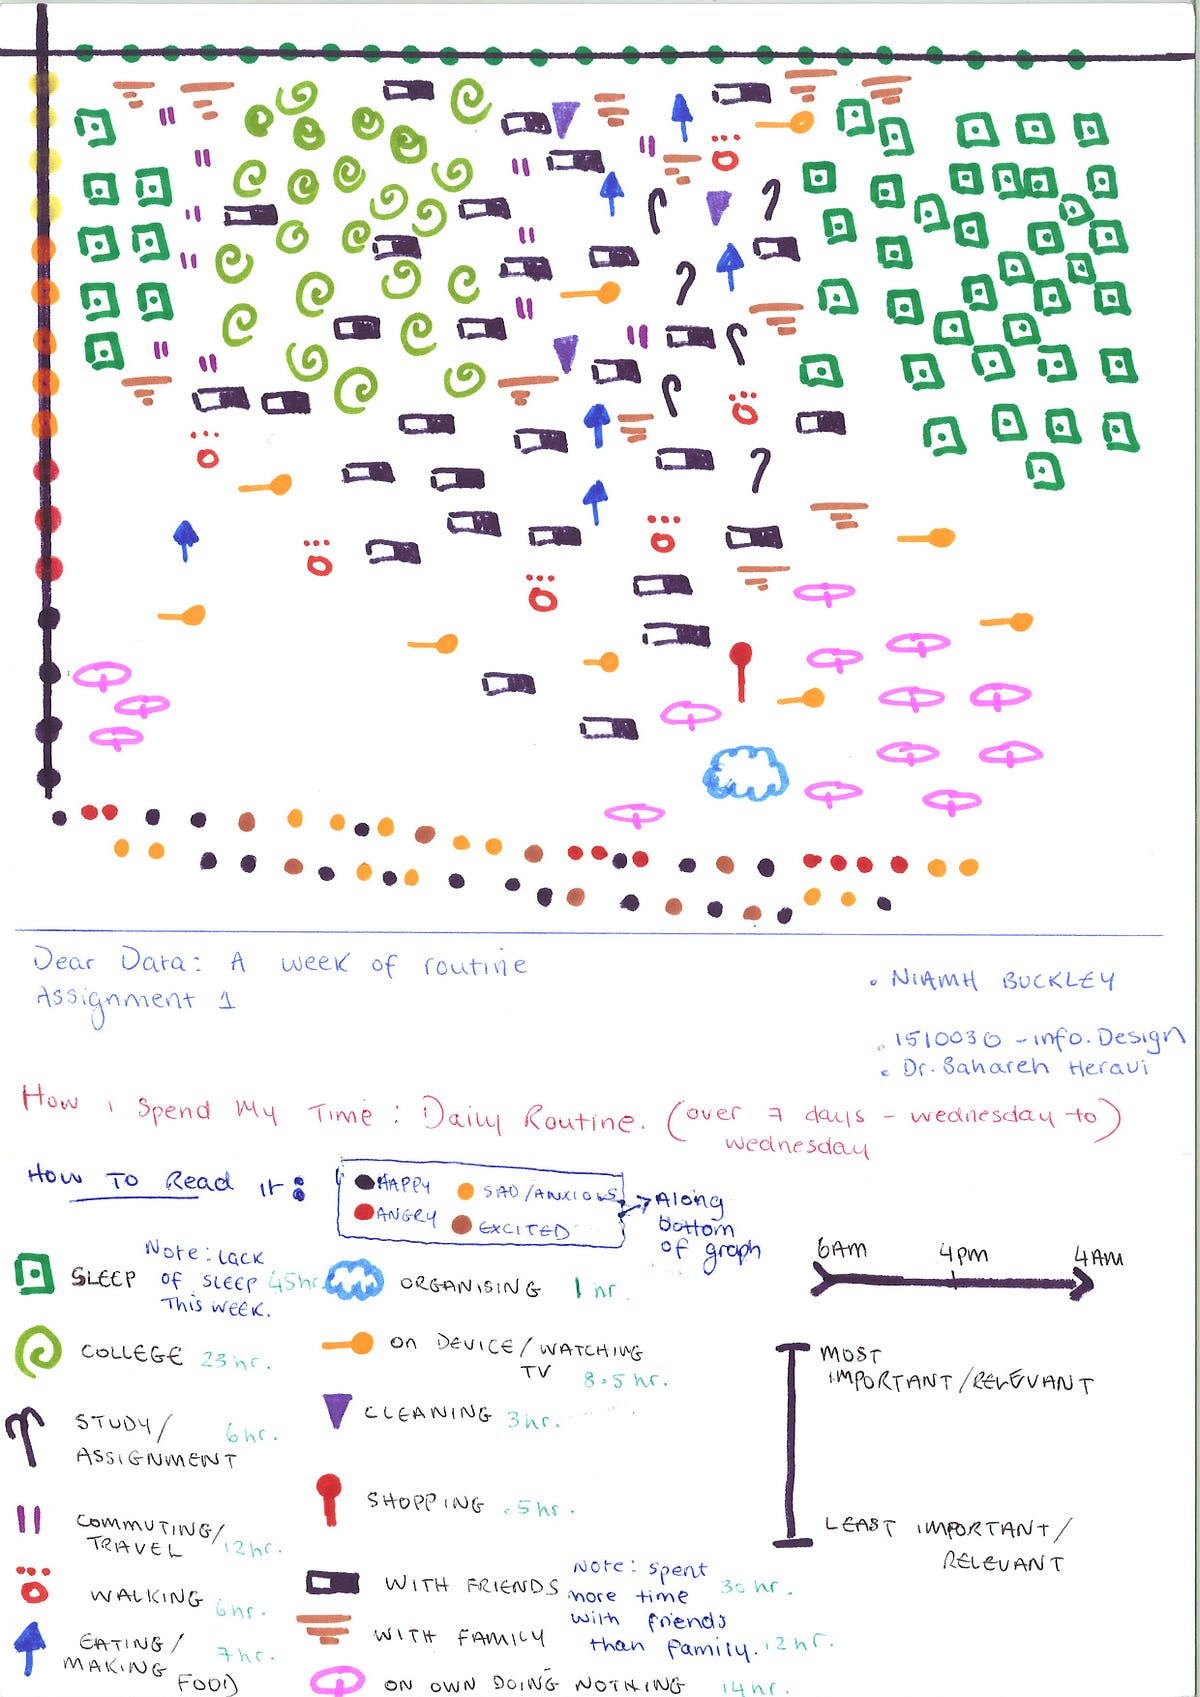 Dear Data: A week of routine
Assignment 1
• NIAMH BUCKLEY
• 1510030 - info. Design
• Dr. Bahareh Heravi
How i Spend My Time: Daily Routine. (over 7 days - wednesday to)
wednesday
How To Read it:
HAPPY
SAD/ANXIOUS
ANGRY
EXCITED
Along
bottom
of graph
6AM 4pm 4AM
SLEEP
Note: lack
of sleep
this week.
45hr.
ORGANISING 1 hr.
COLLEGE 23hr.
ON DEVICE/WATCHING
TV 8.5 hr.
STUDY/
ASSIGNMENT
6hr.
CLEANING 3hr.
COMMUTING/
TRAVEL 12hr.
SHOPPING .5hr.
WALKING 6hr.
WITH FRIENDS
Note: spent
more time
with friends
than family.
30hr.
EATING/
MAKING
FOOD
7hr.
WITH FAMILY 12hr.
ON OWN DOING NOTHING 14hr.
MOST
IMPORTANT/RELEVANT
LEAST IMPORTANT/
RELEVANT